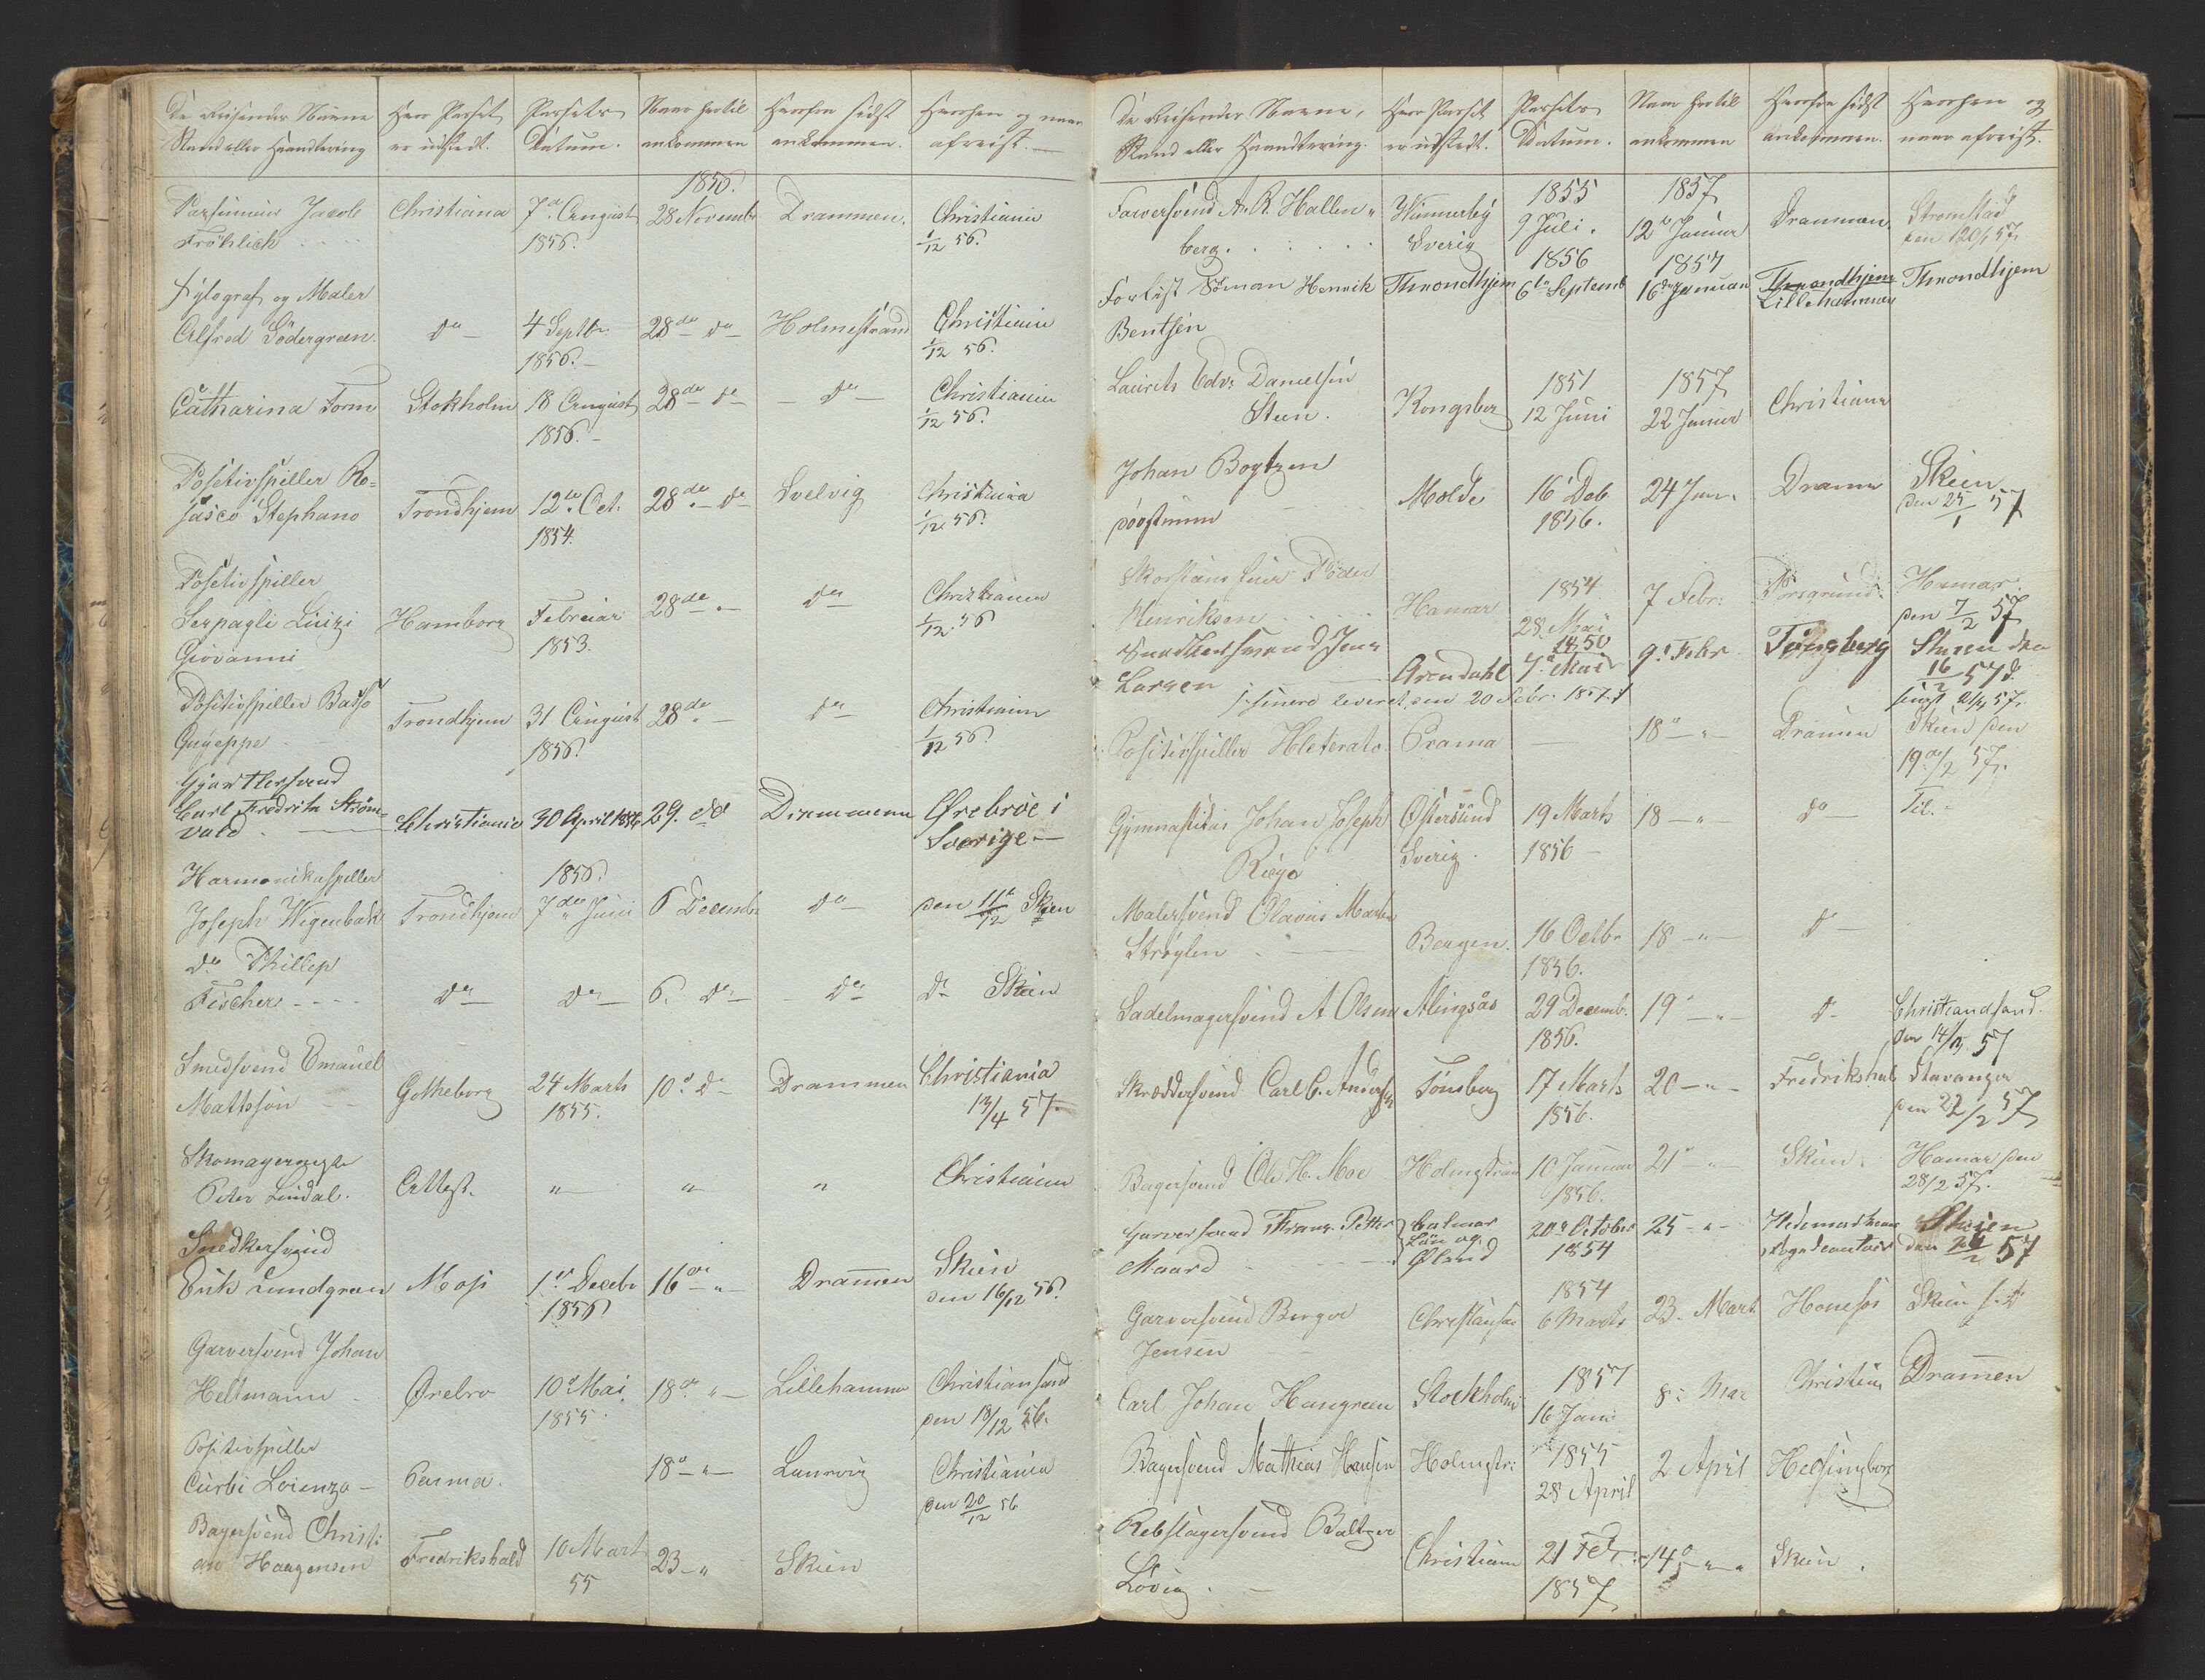 De Reisendes Navne
Stand eller Haandtering
Hvor Passet
er udstedt.
Passets
Datum.
Naar hertil
ankommen
Hvorfra sidst
ankommen.
Hvorhen og naar
afreist.
1856.
Jacob Christiana 7de August 28 Novemb Drammen. Christiania
Fröhlich 1856. 1/12 56.
Xylograf og Maler
Alfred Södergreen. do 4 Septbr 28de do Holmestrand Christiania
1856. 1/12 56.
Catharina Form Stokholm 18 August 28de do do Christiania
1856. 1/12 56.
Positivspiller Ro=
sasco Stephano Trondhjem 12te Oct. 28de do Svelvig Christiania
1854. 1/12 56.
Positivspiller
Serpagli Luigi Hamborg Februar 28de " do Christiania
Giovanni 1853. 1/12 56
Positivspiller Basso
Guyeppe Trondhjem 31 August 28de do Christiania
1856. 1/12 56.
Gjørtlersvend
Carl Fredrik Strøm=
vald Christiania 30 April 1856 29. do Drammen Ørebroe i
Sverige
Harmonikaspiller 1856.
Joseph Wigenbak Trondhjem 7de Juni 6 Decembr do den 11/12 Skien
do Phillip
Fischer do do 6. do do do Skien
Smedsvend Emanuel
Mattsson Gotheborg 24 Marts 10d do Drammen Christiania
1855. 13/4 57.
Peter Lindal. Attest. " " " Christiania
Snedkersvend
Erik Lundgreen Moss 1ste Decebr 16de " Drammen Skien
1856 den 16/12 56.
Garversvend Johan
Hellmann Ørebro 10d Mai 18de " Lillehammer Christiansand
1855. den 18/12 56.
Positivspiller
Curbi Lorenzo Parma. 18d " Laurvig Christiania
den 20/12 56
Bagersvend Christi
an Haagensen Fredrikshald 10 Mart 23 " Skien
55
De Reisendes Navne,
Stand eller Haandtering.
Hvor Passet
er udstedt.
Passets
Datum.
Naar hertil
ankommen
Hvorfra sidst
ankommen.
Hvorhen og
naar afreist.
1855 1857
A. R. Hallen=
berg. Sverig 9 Juli. 12te Januar Drammen. Strømstad
1856 1857
Henrik Throndhjem 6te Septemb 16de Januar Throndhjem Throndhjem
Bentsen Lillehammer
Laurits Edv: Danielsen 1851 1857
Steen. Kongsberg 12 Juni 22 Januar Christiania
Johan Boytzen
Molde 16 Deb 24 Jan. Dramm Skien
1856. den 25/1 57
Skorstensfeier Peder
Henriksen Hamar 1854 7 Febr: Porsgrund. Hamar
28 Mai den 7/2 57
Snedkersvend Jens 1850
Larsen Arendahl 7de Mai 9d Febr Tønsberg Skien den
16/2 57
Positivspiller Parma 18d " Dramen Skien den
19de/2 57.
Gymnastiker Johan Joseph Østersund 19 Marts 18 " do Til.
Riego Sverig. 1856
Malersvend Olavus Martin
Strøglen Bergen. 16 Octbr 18 " do
1856.
Sadelmagersvend A Olsen Alingsås 29 Decemb. 19 " do Christiansand.
1856. den 14/3 57
Skræddersvend Carl C. Andersen Tønsberg 17 Marts 20 " Fredrikshald Stavanger
1856. den 22/2 57
Bagersvend Ole H. Moe Holmestrand 10 Januar 21d " Skien. Hamar den
1856. 28/2 57.
Garversvend Frans Petter Calmar 20de October 25 " Hedemarkens Skien
Maard Län og Øland 1854 Fogdcontoir den 26/2 57
Garversvend Berger 1854
Jensen Christiansan 6 Marts 23 Mart Hønefos Skien s. D.
Carl Johan Hangreen Stockholm 1857 8de Mar Christiania Dramen
16 Jani
Bagersvend Mathias Hansen Holmestr: 1855 2 April Helsingborg
28 April
Rebslagersvend Baltzer
Løvig Christiania 21 Feb. 14d " Skien.
1857